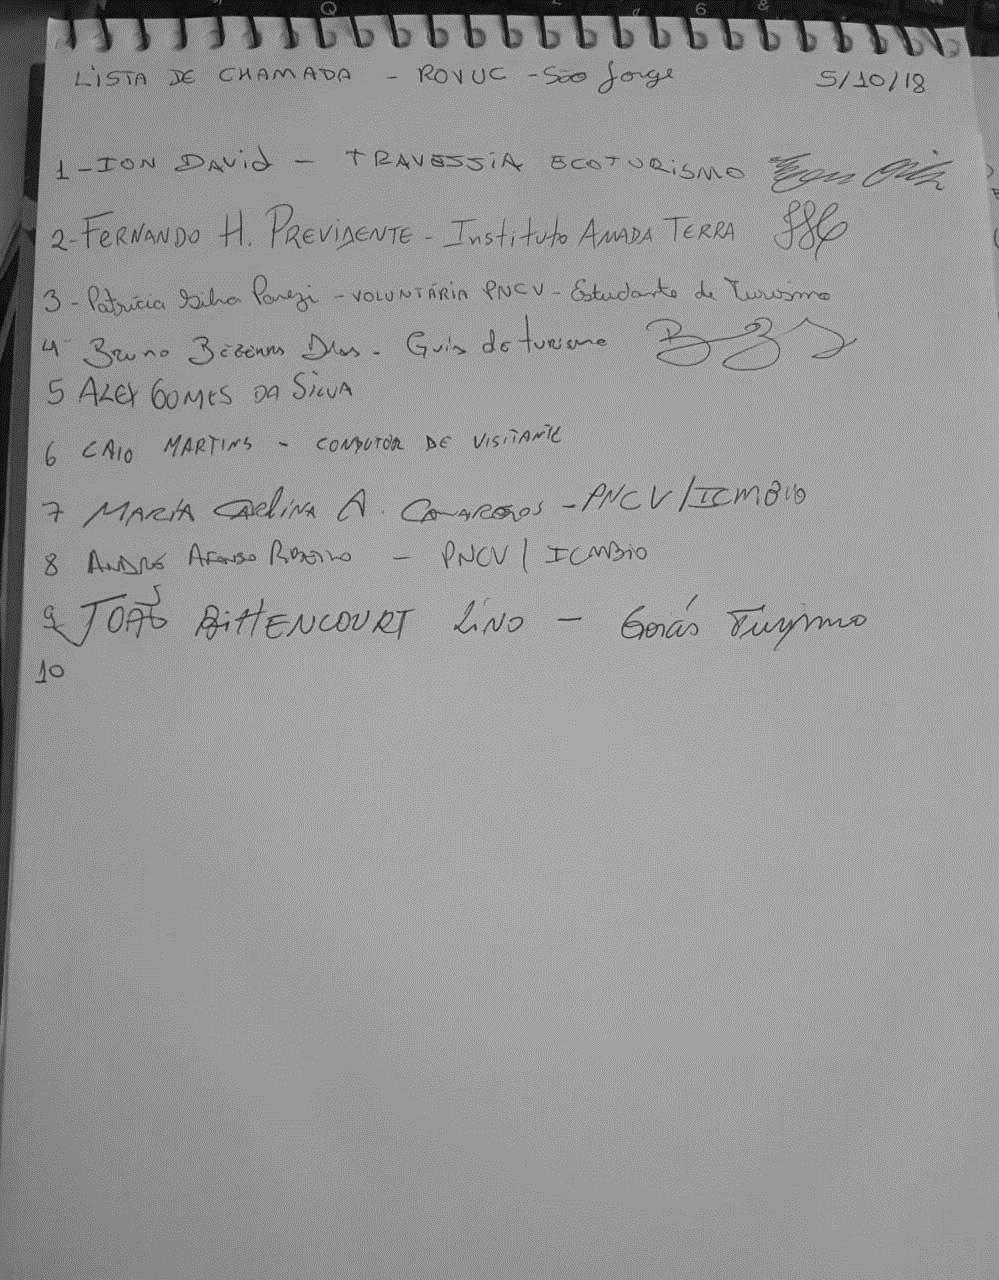 LISTA DE CHAMADA - ROVUC - São Jorge 5/10/18
1 - ION DAVID - TRAVESSIA ECOTURISMO
2 - FERNANDO H. PREVIDENTE - Instituto AMADA TERRA
3 - Patrícia Silva - VOLUNTÁRIA PNCV - Estudante de Turismo
4 - Bruno Bezerra Dias - Guia de turismo
5 ALEX GOMES DA SILVA
6 CAIO MARTINS - CONDUTOR DE VISITANTE
7 MARIA CAROLINA A. - PNCV/ICMBio
8 ANDRÉ AFONSO RIBEIRO - PNCV/ICMBio
9 JOÃO BITTENCOURT LINO - Goiás Turismo
10